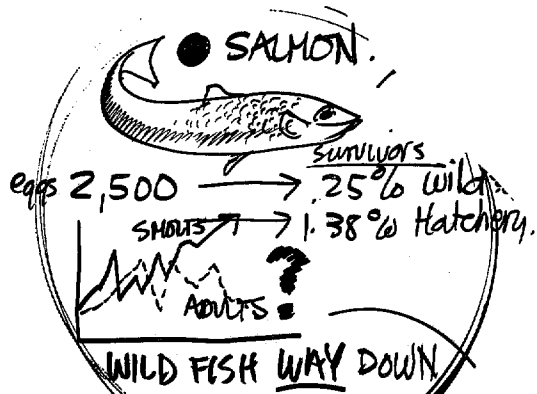 SALMON.
survivors
eggs 2,500 → .25% wild.
SMOLTS → 1.38% Hatchery.
?
ADULTS
WILD FISH WAY DOWN